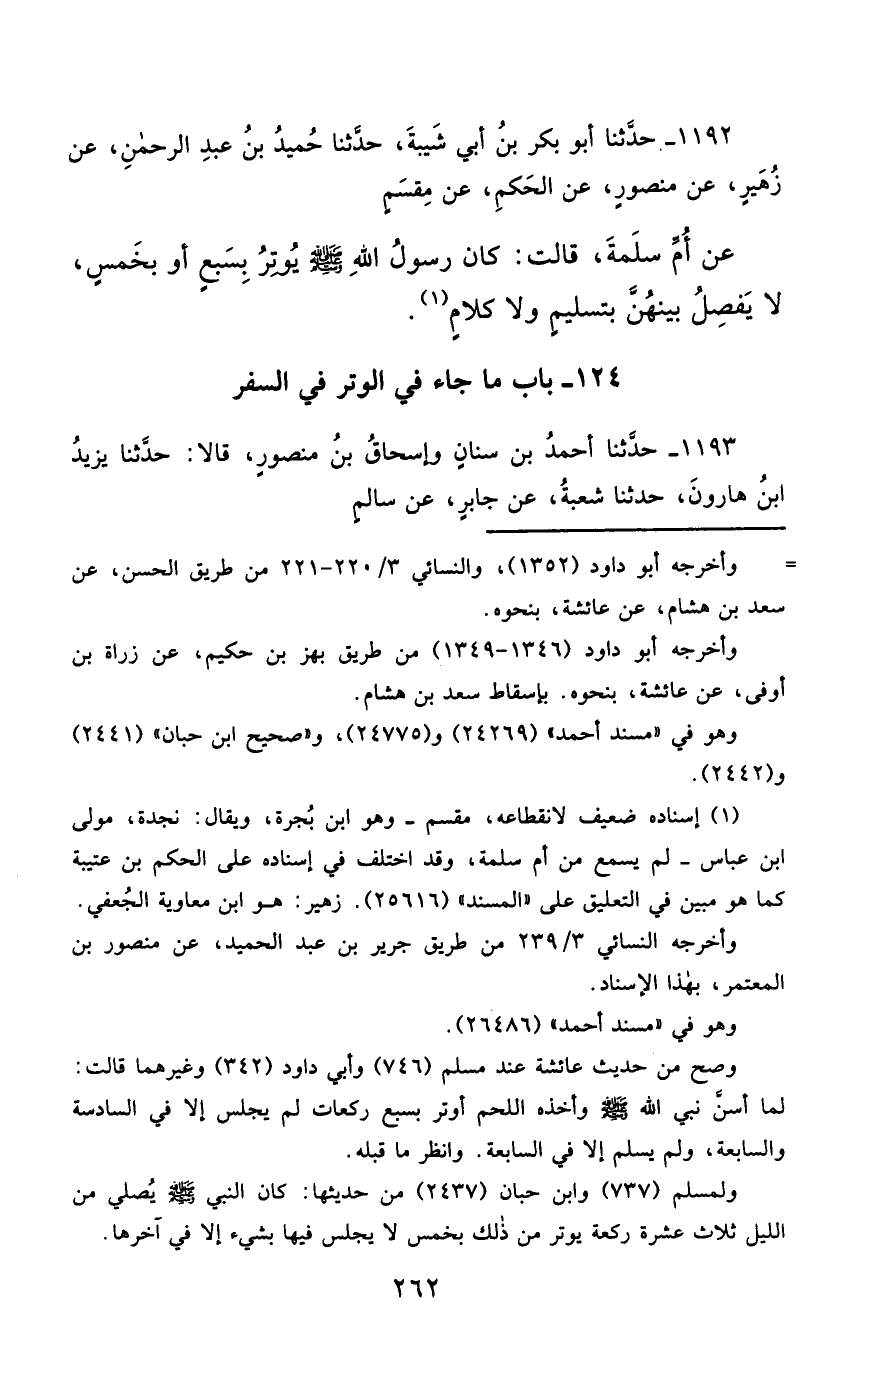 ١١٩٢ـ حدَّثنا أبو بكر بنُ أبي شَيبةَ، حدَّثنا حُميدُ بنُ عبدِ الرحمٰنِ، عن
زُهَيرٍ، عن منصورٍ، عن الحَكمِ، عن مِقسَمٍ
عن أُمِّ سلَمةَ، قالت: كان رسولُ اللهِ ﷺ يُوتِرُ بِسَبعٍ أو بخَمسٍ،
لا يَفصِلُ بينهُنَّ بتسليمٍ ولا كلامٍ(١).
١٢٤ـ باب ما جاء في الوتر في السفر
١١٩٣ـ حدَّثنا أحمدُ بن سنانٍ وإسحاقُ بنُ منصورٍ، قالا: حدَّثنا يزيدُ
ابنُ هارونَ، حدثنا شعبةُ، عن جابرٍ، عن سالمٍ
= وأخرجه أبو داود (١٣٥٢)، والنسائي ٣/ ٢٢٠-٢٢١ من طريق الحسن، عن
سعد بن هشام، عن عائشة، بنحوه.
وأخرجه أبو داود (١٣٤٦-١٣٤٩) من طريق بهز بن حكيم، عن زراة بن
أوفى، عن عائشة، بنحوه. بإسقاط سعد بن هشام.
وهو في «مسند أحمد» (٢٤٢٦٩) و(٢٤٧٧٥)، و«صحيح ابن حبان» (٢٤٤١)
و(٢٤٤٢).
(١) إسناده ضعيف لانقطاعه، مقسم ـ وهو ابن بُجرة، ويقال: نجدة، مولى
ابن عباس ـ لم يسمع من أم سلمة، وقد اختلف في إسناده على الحكم بن عتيبة
كما هو مبين في التعليق على «المسند» (٢٥٦١٦). زهير: هـو ابن معاوية الجُعفي.
وأخرجه النسائي ٣/ ٢٣٩ من طريق جرير بن عبد الحميد، عن منصور بن
المعتمر، بهٰذا الإسناد.
وهو في «مسند أحمد» (٢٦٤٨٦).
وصح من حديث عائشة عند مسلم (٧٤٦) وأبي داود (٣٤٢) وغيرهما قالت:
لما أسنَّ نبي الله ﷺ وأخذه اللحم أوتر بسبع ركعات لم يجلس إلا في السادسة
والسابعة، ولم يسلم إلا في السابعة. وانظر ما قبله.
ولمسلم (٧٣٧) وابن حبان (٢٤٣٧) من حديثها: كان النبي ﷺ يُصلي من
الليل ثلاث عشرة ركعة يوتر من ذٰلك بخمس لا يجلس فيها بشيء إلا في آخرها.
٢٦٢